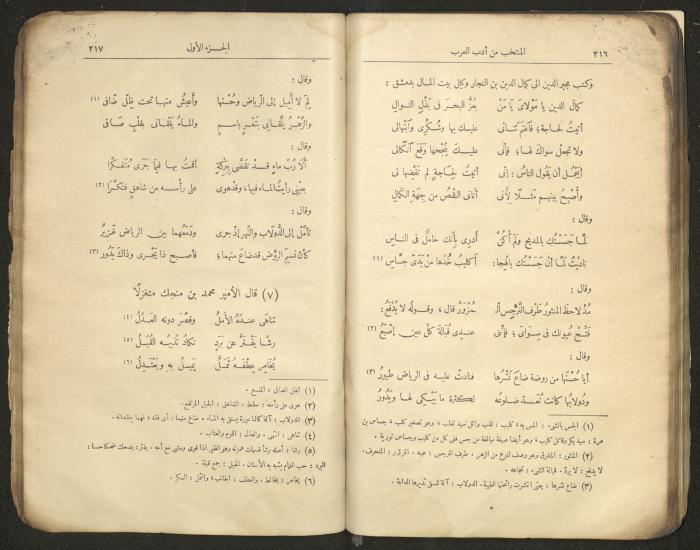 ٢١٦
المنتخب من أدب العرب
وكتب مجير الدين الى كمال الدين بن النجار وكيل بيت المال بدمشق :
كمالَ الدين يا مولاىَ يا مَنْ يغُرُّ البحرَ فى بَذْلِ النوالِ
أتيتُ لحاجة؛ فاغنم ثنائى عليك بها وشُكْرِى وابتهالى
ولا تجعل سواكَ لها؛ فإنى عليك بنُجْحِها وقَعَ اتّكالى
أيَجمُل أن يقول الناسُ : إنى أتيتُ لحاجةٍ لم تَقْضِها لى
وأُصْبِحُ بينهم مَثَلًا لأنى أتانى النقصُ من جِهَةِ الكمالِ
وقال :
لمّا جَسَسْتُكَ بالمديح ولم أكُنْ أدرى بأنك خاملٌ فى الناسِ
ناديْتُ لمّا أن جَسَسْتُك بالهجا: أكليبُ خُذها من يَدَىْ جسّاسِ (١)
وقال :
مُذ لاحظَ المنثورُ طَرْفَ النرجِسِ الْـ مُزْوَرَّ قال ، وقولُه لا يُدْفَعُ:
فَتِّحْ عيونك فى سِوَاىَ ؛ فإنّنى عندى قُبالةَ كلّ عينٍ إصْبَعُ (٢)
وقال :
أيا حُسْنَها من روضة ضاعَ نَشْرُها فنادتْ عليه فى الرياض طيورُ (٣)
ودولابُها كادتْ تُعَدُّ ضلوعُه لكثرة ما يَبْكِى لها ويَدُورُ
(١) الجسّ بالشىء : المسّ به، كليب : لقب وائل سيد تغلب ، وهو تصغير كلب ، جساس بن
مرة : سيد بكر وقاتل كليب ، وهو أيضا صيغة مبالغة من جس ففى كل من كليب وجساس تورية .
(٢) المنثور : المتفرق وهو وصف لنوع من الزهر . طرف النرجس : عينه . المزور : المنحرف.
لا يدفع : لا يردّ . قبالة الشىء : تجاهه .
(٣) ضاع نشرها : يعنى انتشرت رائحتها الطيبة. الدولاب : آلة للسقى تديرها الدابة .
الجزء الأول
٢١٧
وقال :
لِمْ لا أميل إلى الرياض وحُسْنِها وأعيشُ منها تحت ظلّ ضافى (١)
والزّهْرُ يلقانى بثَغْرٍ باسمٍ والماءُ يلقانى بقلبٍ صافى
وقال :
ألا رُبّ ماءٍ قد تقضّى ببركة أقمتُ بها فيما جَرَى مُتَفكِّرَا
بعيْنى رأيتُ الماءَ فيها، وقد هوى على رأسه من شاهقٍ فتكسّرَا (٢)
وقال :
تأمّلْ إلى الدّولاب والنّهر إذ جرى ودَمْعُهما بين الرياض غزيرُ
كأنّ نسيمَ الرّوْض قد ضاع منهما؛ فأصبح ذا يَجْرى وذاك يَدُورُ (٣)
(٧) قال الأمير محمد بن منجك متغزلًا
تناهَى عندَهُ الأملُ وقصّر دونه العَذَلُ (٤)
رشًا يفْتَرُّ عن بَرَدٍ تكادُ تُذيبُه القُبَلُ (٥)
يُخامِرُ عِطْفَه ثَمَلٌ يَميلُ به ويَعْتَدِلُ (٦)
(١) الظل الضافى : المتسع .
(٢) هوى على رأسه : سقط . الشاهق : الجبل المرتفع .
(٣) الدولاب : آلة كالناعورة يستقى بها الماء . ضاع منهما : أى فقد، فهما ينشدانه .
(٤) تناهى : انتهى . والعذل : اللوم والعتاب .
(٥) رشا : أصله رشأ فسهلت همزته وهو الظبى اذا قوى ومشى مع أمه . يفتر: يضحك ضحكا حسنا :
البرد : حب الغمام يشبه به الأسنان . القبل : جمع قبلة .
(٦) يخامر : يخالط . والعطف : الجانب، والثمل : السكر .